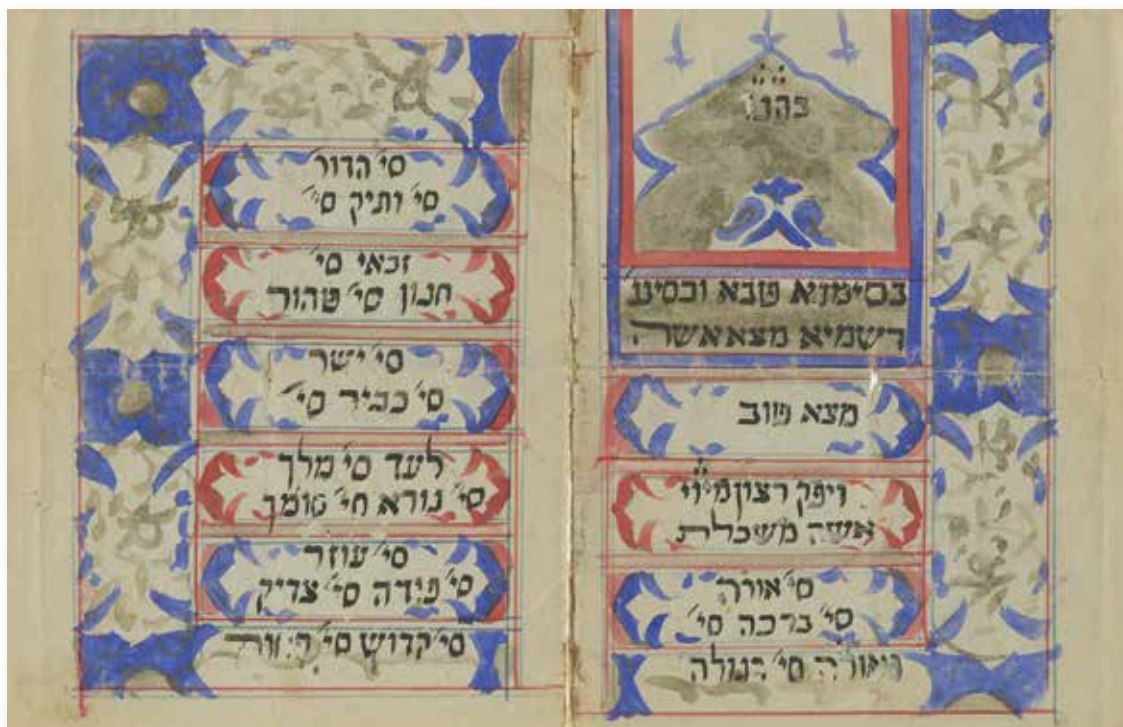 בסימנא טבא ובסיע
דשמיא מצא אשה
מצא טוב
ויפק רצון מיי
אשה משכלת
סי׳ אורה
סי׳ ברכה סי׳
סי׳
סי׳ הדור
סי׳ ותיק סי׳
זכאי סי׳
חנון סי׳ טהור
סי׳ ישר
סי׳ כביר סי׳
לעד סי׳ מלך
סי׳ נורא סי׳ סומך
סי׳ עוזר
סי׳ פודה סי׳ צדיק
סי׳ קדוש סי׳